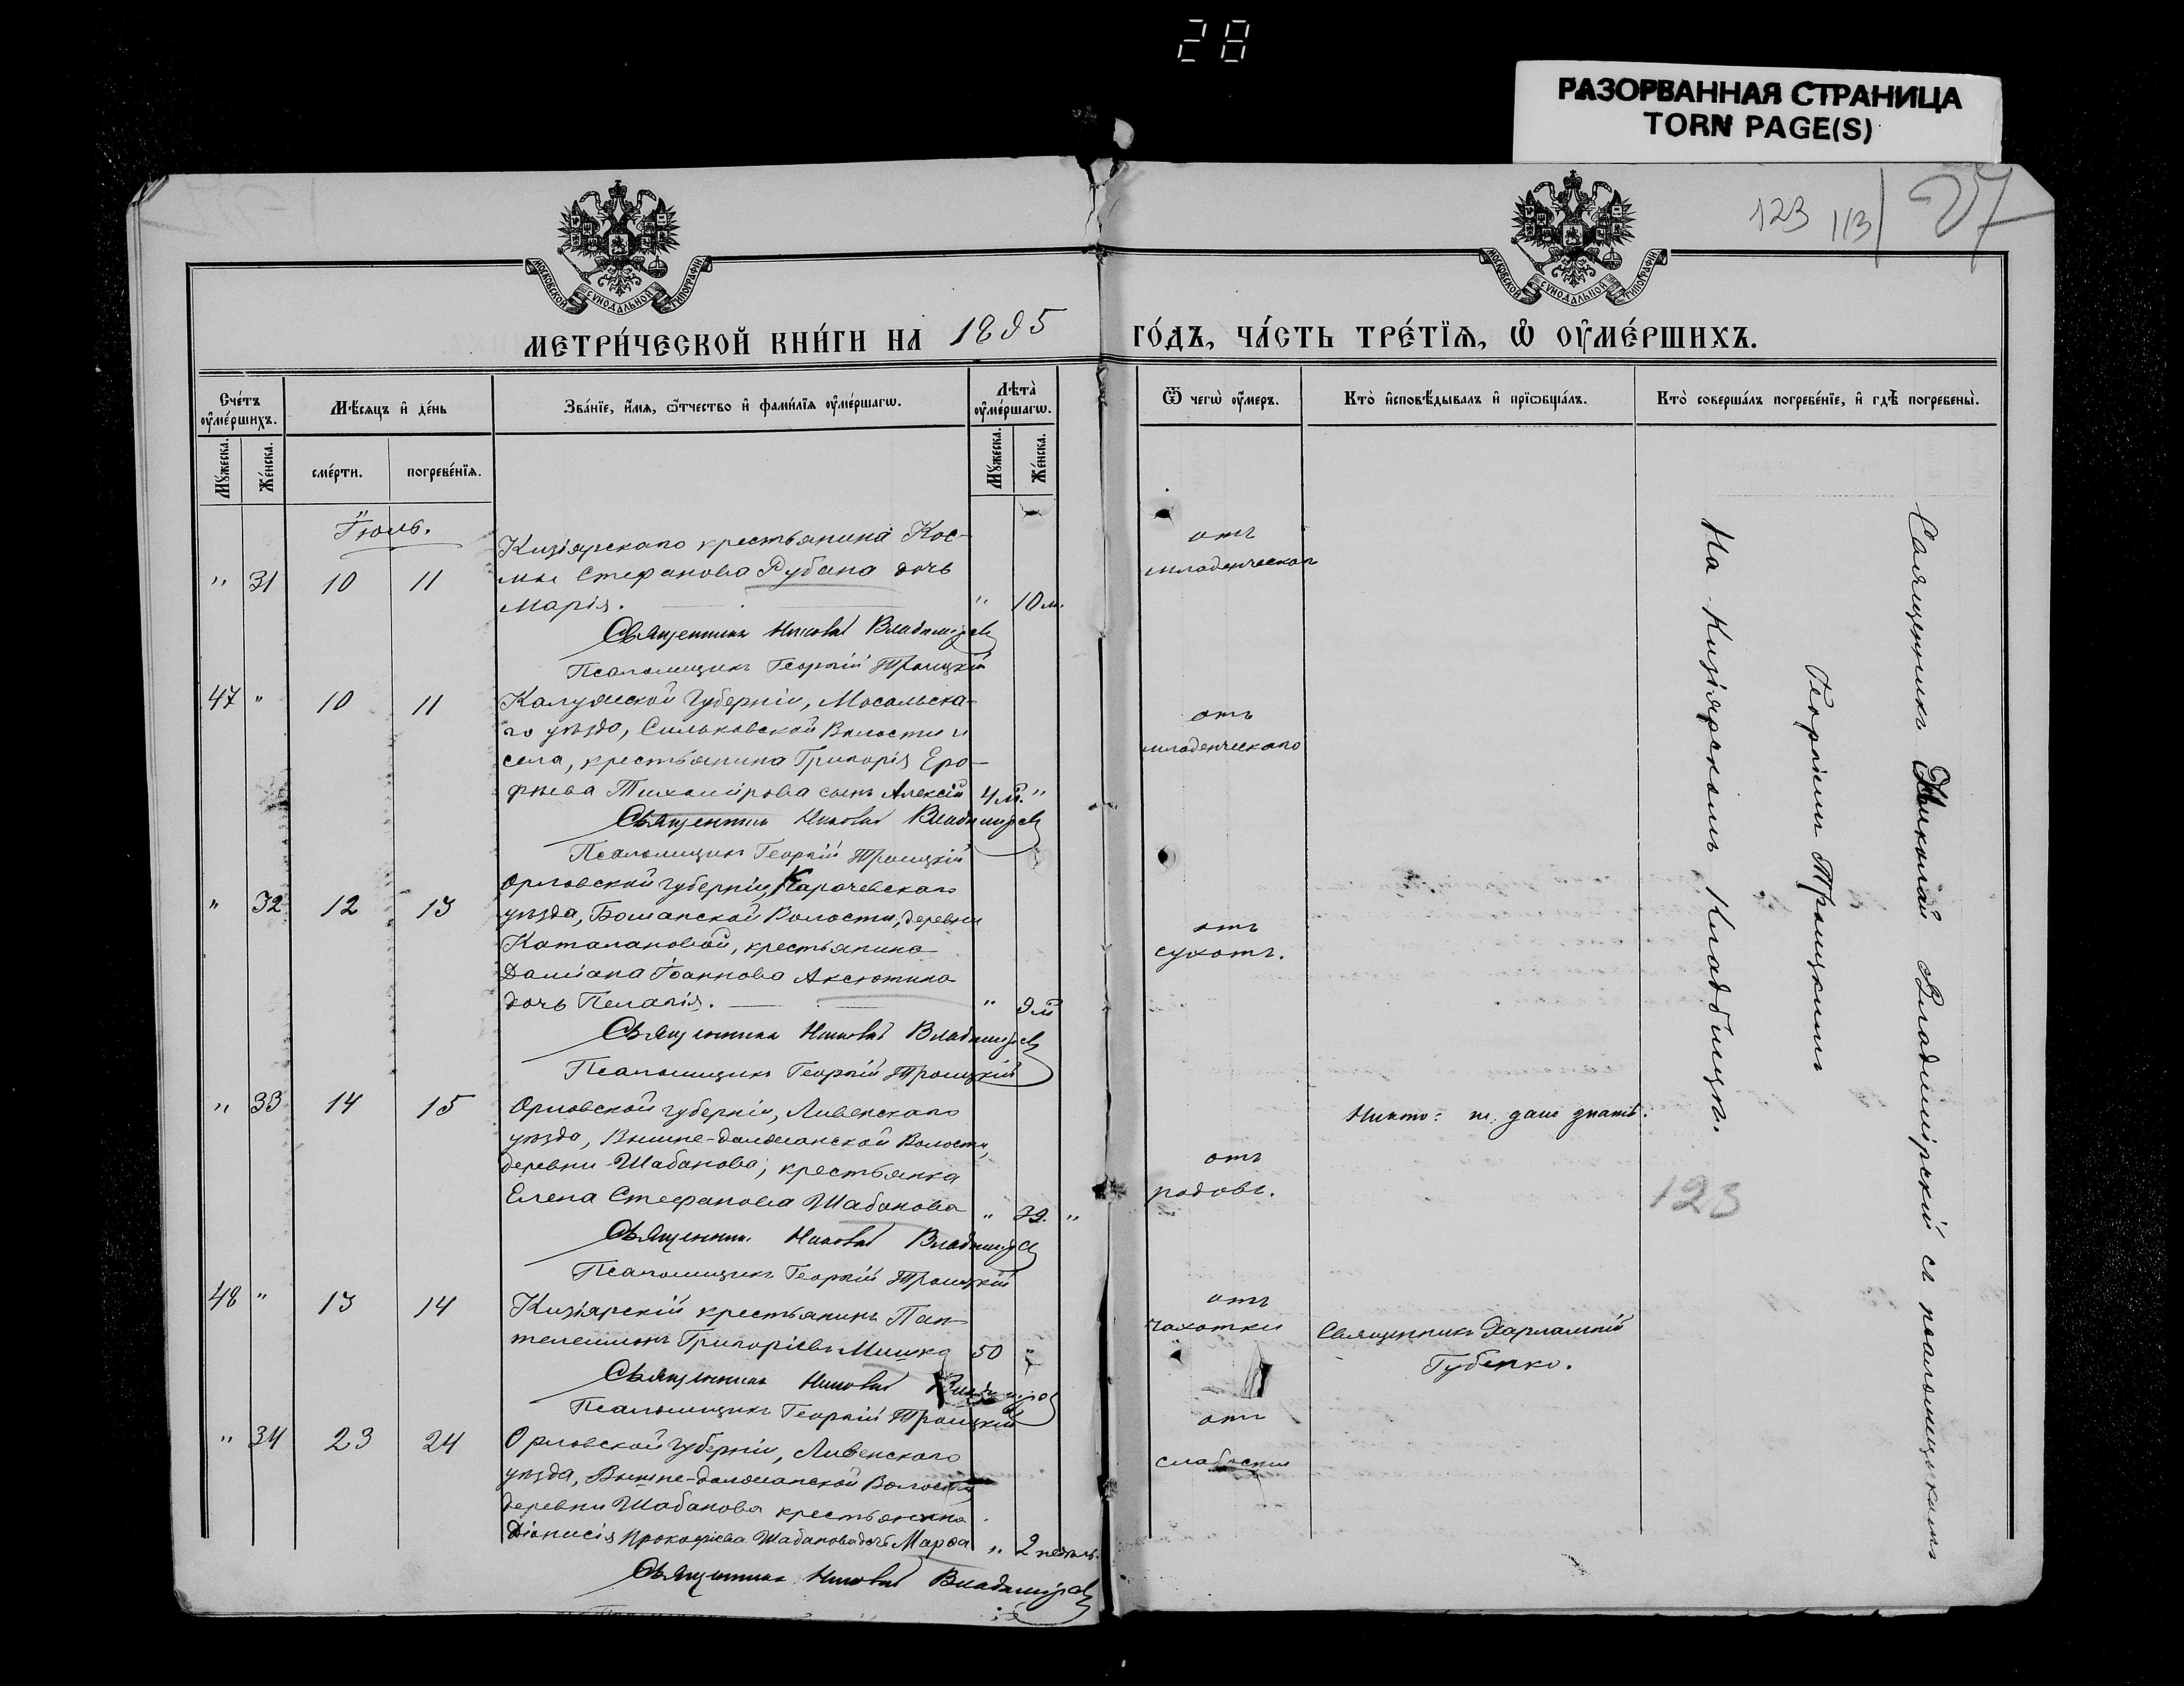 28
РАЗОРВАННАЯ СТРАНИЦА
TORN PAGE(S)
123 113 27
МОСКОВСКОЙ СѴНОДАЛЬНОЙ ТИПОГРАФІИ
МОСКОВСКОЙ СѴНОДАЛЬНОЙ ТИПОГРАФІИ
МЕТРИ́ЧЕСКОЙ КНИ́ГИ НА 1895
ГО́ДЪ, ЧА́СТЬ ТРЕ́ТЇѦ, Ѡ҆ ОУ҆МЕ́РШИХЪ.
Сче́тъ оу҆ме́ршихъ.
Мꙋ́жеска.
Же́нска.
Мѣ́сяцъ и҆ де́нь
сме́рти.
погребе́нїѧ.
Зва́нїе, и҆́мѧ, ѻ҆́тчество и҆ фами́лїѧ оу҆ме́ршагѡ.
Лѣта̀ оу҆ме́ршагѡ.
Мꙋ́жеска.
Же́нска.
Ѿ чегѡ̀ оу҆́меръ.
Кто̀ и҆сповѣ́дывалъ и҆ прїѡбща́лъ.
Кто̀ соверша́лъ погребе́нїе, и҆ гдѣ̀ погребены̀.
Іюль.
" 31 10 11
Кизіярскаго крестьянина Кос-
мы Стефанова Рубана дочь
Марія. " 10 м.
Священникъ Николай Владимірскій
Псаломщикъ Георгій Троицкій
отъ
младенческаго
47 " 10 11
Калужской Губерніи, Мосальска-
го уѣзда, Сильковской Волости и
села, крестьянина Григорія Еро-
фѣева Тихомірова сынъ Алексій 4 м. "
Священникъ Николай Владимірскій
Псаломщикъ Георгій Троицкій
отъ
младенческаго
" 32 12 13
Орловской губерніи, Карачевскаго
уѣзда, Волости, деревни
крестьянина
Даміана Іоаннова Аксютина
дочь Пелагія. " 9 м
Священникъ Николай Владимірскій
Псаломщикъ Георгій Троицкій
отъ
сухотъ.
" 33 14 15
Орловской губерніи, Ливенскаго
уѣзда, Вышне-должанской Волости,
деревни Шабанова, крестьянка
Елена Стефанова Шабанова " 39. "
Священникъ Николай Владимірскій
Псаломщикъ Георгій Троицкій
отъ
родовъ.
Никто: не дано знать.
48 " 13 14
Кизіярскій крестьянинъ Пан-
телеимонъ Григоріевъ Мишка 50 "
Священникъ Николай Владимірскій
Псаломщикъ Георгій Троицкій
отъ
чахотки
Священникъ Харлампій
Губенко.
" 34 23 24
Орловской губерніи, Ливенскаго
уѣзда, Вышне-должанской Волости,
деревни Шабанова крестьянина
Діонисія Прокофіева Шабанова дочь Марѳа " 2 недѣль.
Священникъ Николай Владимірскій
отъ
слабости
Священникъ Николай Владимірскій съ псаломщикомъ
Георгіемъ Троицкимъ
На Кизіярскомъ Кладбищѣ.
123